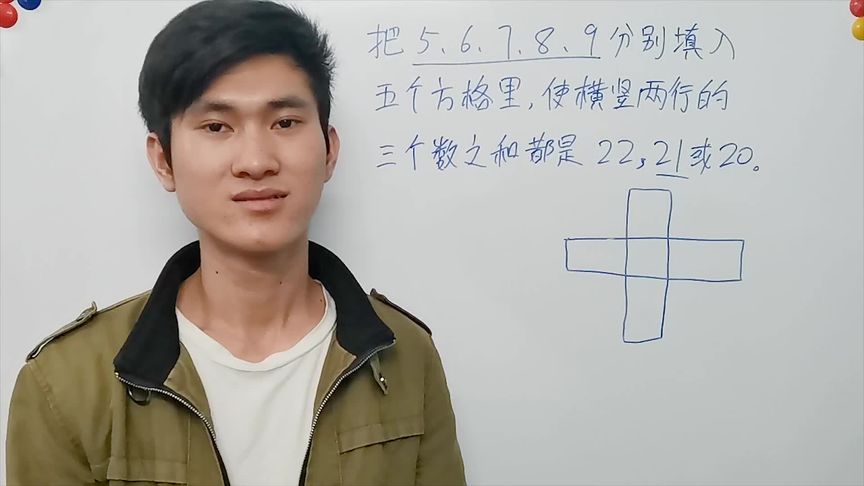 把5、6、7、8、9分别填入
五个方格里,使横竖两行的
三个数之和都是22,21或20。